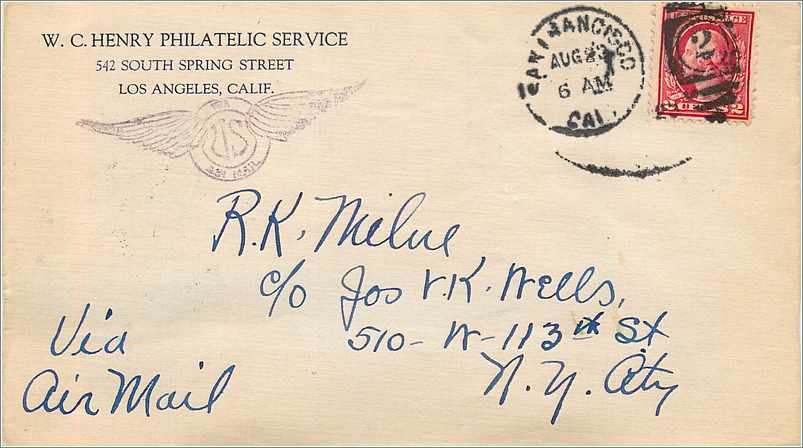 W. C. HENRY PHILATELIC SERVICE
542 SOUTH SPRING STREET
LOS ANGELES, CALIF.
US
AIR MAIL
SAN FRANCISCO
AUG 23
6 AM
CAL.
POSTAGE
2
2 CENTS 2
R.K. Milne
c/o Jos V.K. Wells,
510 - W - 113th St
N. Y. City
Via
Air Mail